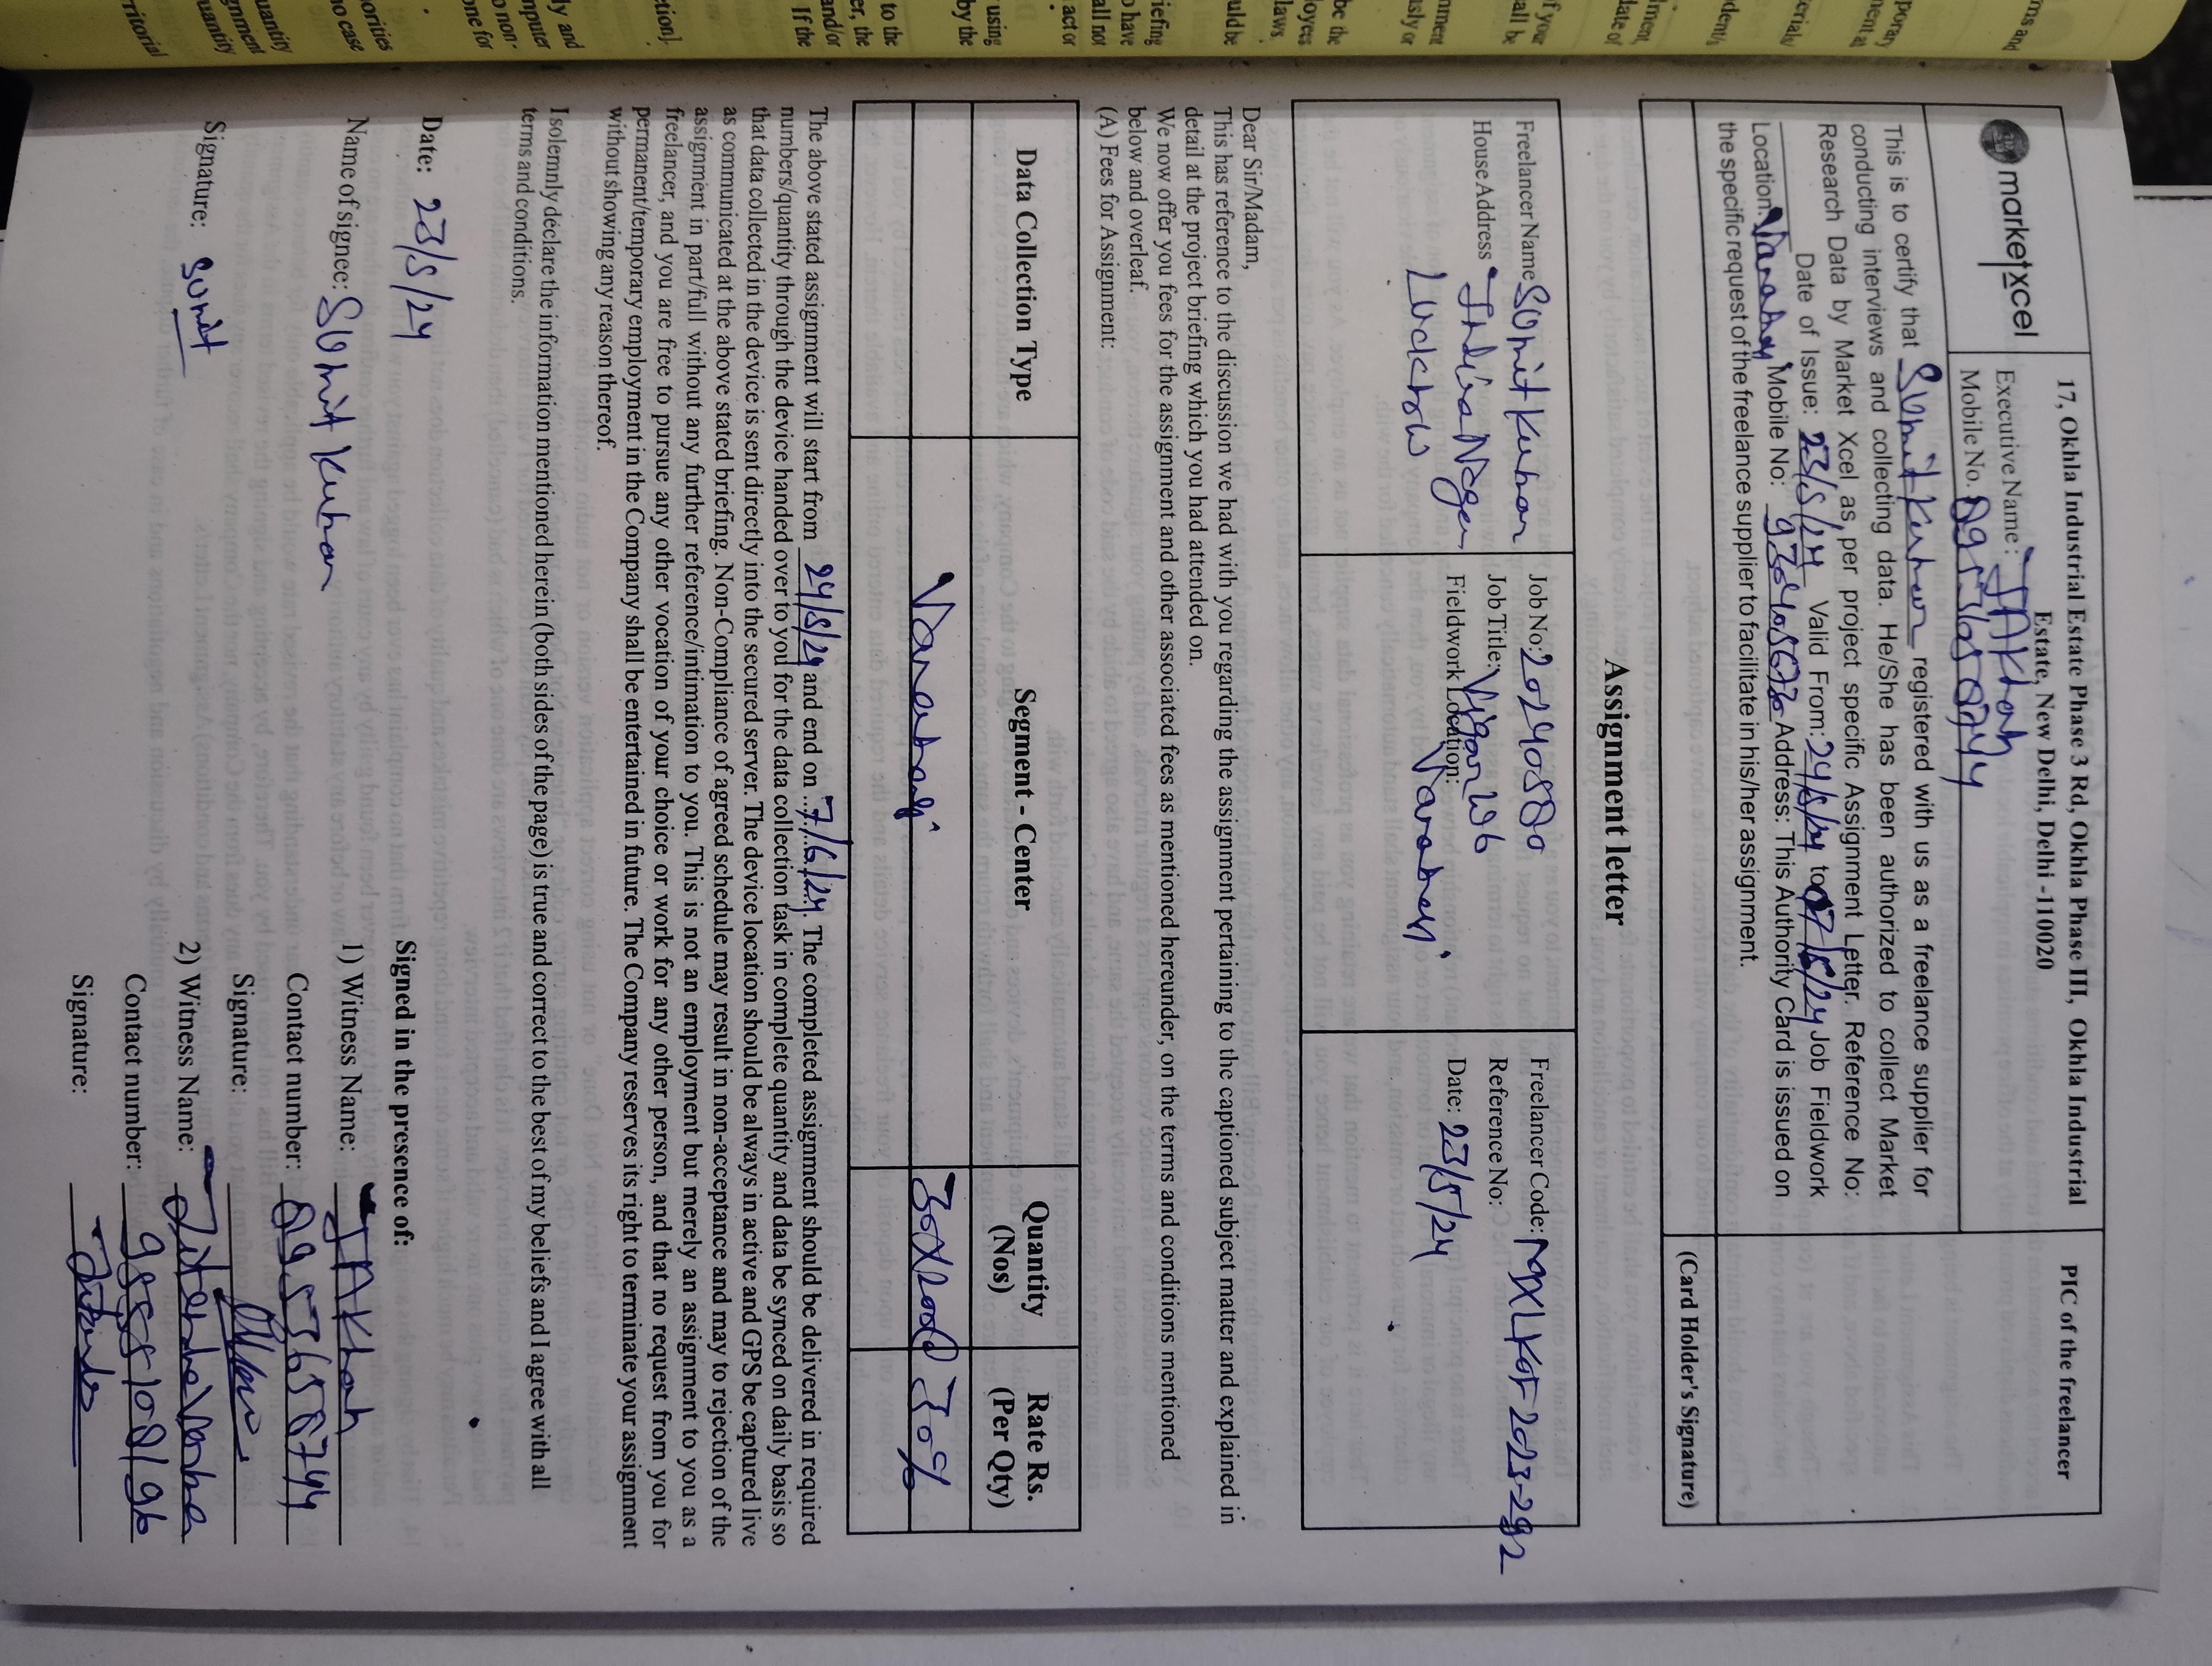 marketxcel
17, Okhla Industrial Estate Phase 3 Rd, Okhla Phase III, Okhla Industrial
Estate, New Delhi, Delhi -110020
Executive Name:
Mobile No.
PIC of the freelancer
This is to certify that Sumit Kumar registered with us as a freelance supplier for
conducting interviews and collecting data. He/She has been authorized to collect Market
Research Data by Market Xcel as per project specific Assignment Letter. Reference No:
Date of Issue: 23/5/24 Valid From: 24/5/24 to 07/6/24 Job Fieldwork
Location: Varanasi Mobile No: Address: This Authority Card is issued on
the specific request of the freelance supplier to facilitate in his/her assignment.
(Card Holder's Signature)
Assignment letter
Freelancer Name Sumit Kumar
House Address Indira Nagar
Lucknow
Job No:
Job Title:
Fieldwork Location: Varanasi
Freelancer Code:
Reference No:
Date: 23/5/24
Dear Sir/Madam,
This has reference to the discussion we had with you regarding the assignment pertaining to the captioned subject matter and explained in
detail at the project briefing which you had attended on.
We now offer you fees for the assignment and other associated fees as mentioned hereunder, on the terms and conditions mentioned
below and overleaf.
(A) Fees for Assignment:
Data Collection Type
Segment - Center
Quantity
(Nos)
Rate Rs.
(Per Qty)
Varanasi
The above stated assignment will start from 24/5/24 and end on 7/6/24. The completed assignment should be delivered in required
numbers/quantity through the device handed over to you for the data collection task in complete quantity and data be synced on daily basis so
that data collected in the device is sent directly into the secured server. The device location should be always in active and GPS be captured live
as communicated at the above stated briefing. Non-Compliance of agreed schedule may result in non-acceptance and may to rejection of the
assignment in part/full without any further reference/intimation to you. This is not an employment but merely an assignment to you as a
freelancer, and you are free to pursue any other vocation of your choice or work for any other person, and that no request from you for
permanent/temporary employment in the Company shall be entertained in future. The Company reserves its right to terminate your assignment
without showing any reason thereof.
I solemnly declare the information mentioned herein (both sides of the page) is true and correct to the best of my beliefs and I agree with all
terms and conditions.
Date: 23/5/24
Name of signee: Sumit Kumar
Signature: Sumit
Signed in the presence of:
1) Witness Name:
Contact number:
Signature:
2) Witness Name: Jitendra Verma
Contact number:
Signature: